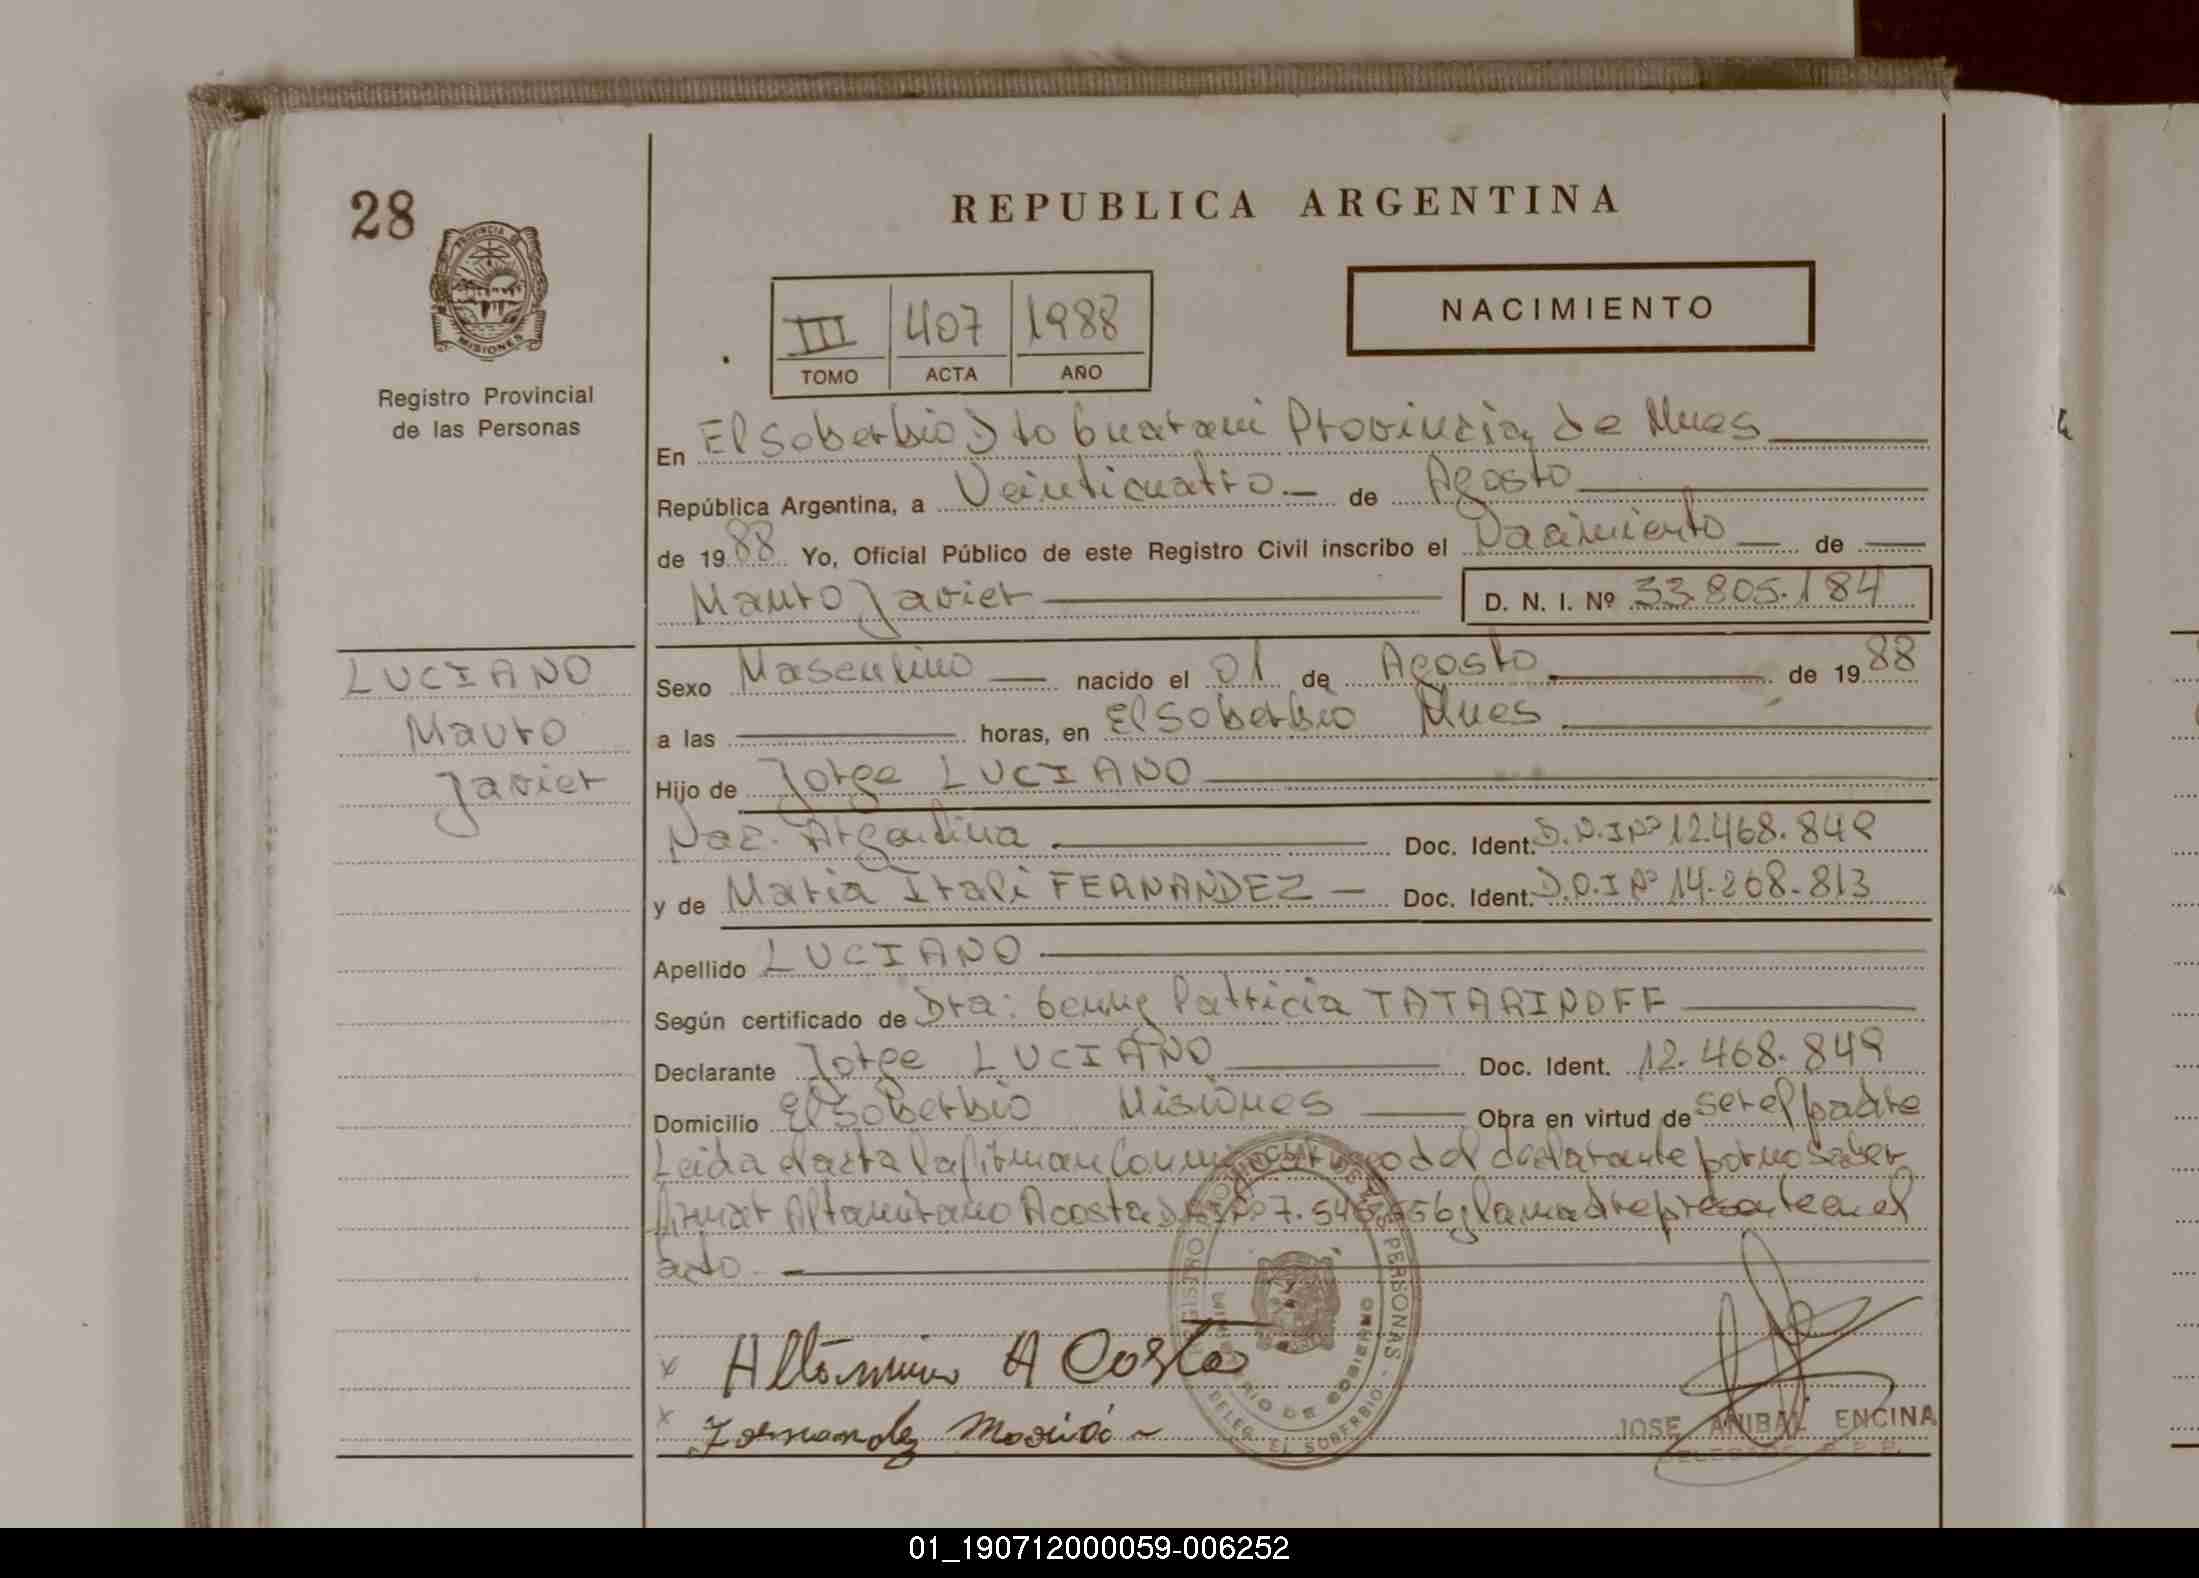 28
PROVINCIA DE
MISIONES
Registro Provincial
de las Personas
REPUBLICA ARGENTINA
III 407 1988
TOMO ACTA AÑO
NACIMIENTO
En El Soberbio Dto Guarani Provincia de Mnes
República Argentina, a Veinticuatro.— de Agosto
de 1988 Yo, Oficial Público de este Registro Civil inscribo el Nacimiento — de —
Mauro Javier D. N. I. Nº 33.805.184
LUCIANO
Mauro
Javier
Sexo Masculino — nacido el 01 de Agosto de 1988
a las — horas, en El Soberbio Mnes
Hijo de Jorge LUCIANO
Nac. Argentina Doc. Ident. D.N.I Nº 12.468.849
y de Maria Itali FERNANDEZ — Doc. Ident. D.N.I Nº 14.268.813
Apellido LUCIANO
Según certificado de Dra: Genny Patricia TATARINOFF
Declarante Jorge LUCIANO Doc. Ident. 12.468.849
Domicilio El Soberbio Misiones Obra en virtud de ser el padre
Leida el acta la firman Conmigo a ruego del declarante por no saber
firmar Altamirano Acosta 7.54 56 y la madre presente en el
acto
x Altamirano Acosta
x Fernandez Maria
REGISTRO PROVINCIAL DE LAS PERSONAS
MINISTERIO DE GOBIERNO
DELEG. EL SOBERBIO
JOSE ANIBAL ENCINA
01_190712000059-006252